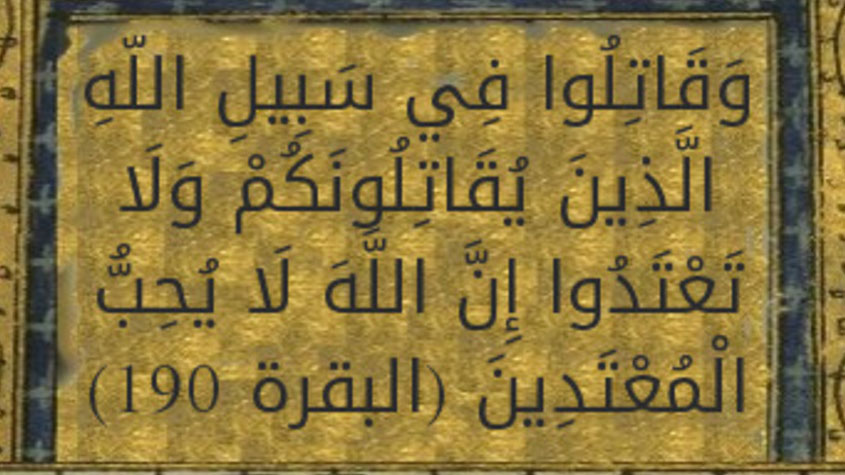 وَقَاتِلُوا فِي سَبِيلِ اللَّهِ
الَّذِينَ يُقَاتِلُونَكُمْ وَلَا
تَعْتَدُوا إِنَّ اللَّهَ لَا يُحِبُّ
الْمُعْتَدِينَ (البقرة 190)